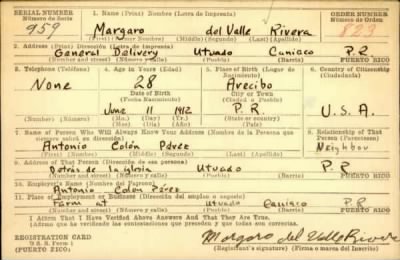 SERIAL NUMBER 1. Name (Print) Nombre (Letra de Imprenta) ORDER NUMBER
Número de Serie Número de Orden
959 Margaro del Valle Rivera 823
(First) (Nombre) (Middle) (Segundo) (Last) (Apellido)
2. Address (Print) Dirección (Letra de Imprenta)
General Delivery Utuado Caniaco P.R
(Number and street) Número y calle (Town) (Pueblo) PUERTO RICO
3. Telephone (Teléfono) 4. Age in Years (Edad) 5. Place of Birth (Lugar de Nacimiento) 6. Country of Citizenship (Ciudadanía)
None 28 Arecibo
Date of Birth (Fecha Nacimiento) City or Town (Ciudad o Pueblo)
June 11 1912 P.R U.S.A.
(Mo.) (Mes) (Day) (Día) (Yr.) (Año) (State or country) (Estado o país)
7. Name of Person Who Will Always Know Your Address (Nombre de la Persona que siempre sabrá su dirección) 8. Relationship of That Person (Parentesco)
Antonio Colón Pérez Neighbour
(Last) (Apellido)
9. Address of That Person (Dirección de esa persona)
Detrás de la glesia Utuado P.R
(Number and street) (Número y calle) (Town) (Pueblo) PUERTO RICO
10. Employer's Name (Nombre del Patrono)
Antonio Colón Pérez
11. Place of Employment or Business (Dirección del empleo o negocio)
Farm at Utuado Caniaco P.R
(Number and street) (Número y calle) (Town) (Pueblo) PUERTO RICO
I Affirm That I Have Verified Above Answers And That They Are True.
(Afirmo que he verificado las contestaciones que preceden y que todas son ciertas.)
REGISTRATION CARD
Form 1 Margaro del Valle Rivera
PUERTO RICO Registrant's signature (Firma o marca del inscrito)